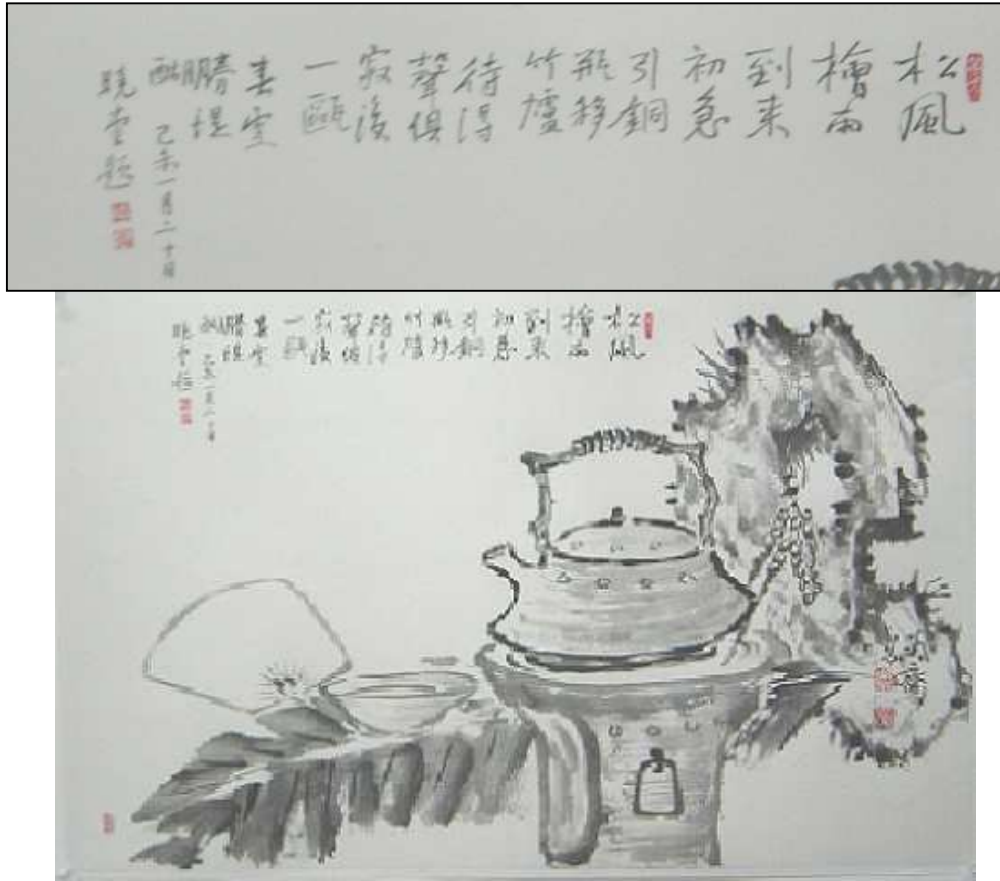 松風
檜雨
到来
初急
引銅
瓶移
竹爐
待得
聲俱
寂後
一甌
春雪
勝醍
醐 己未一月二十日
曉堂題